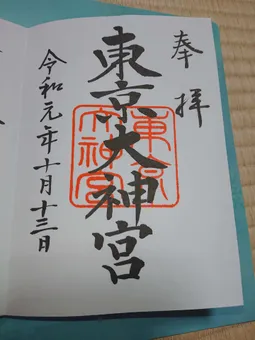 奉拝
東京大神宮
東京大神宮
令和元年十月十三日